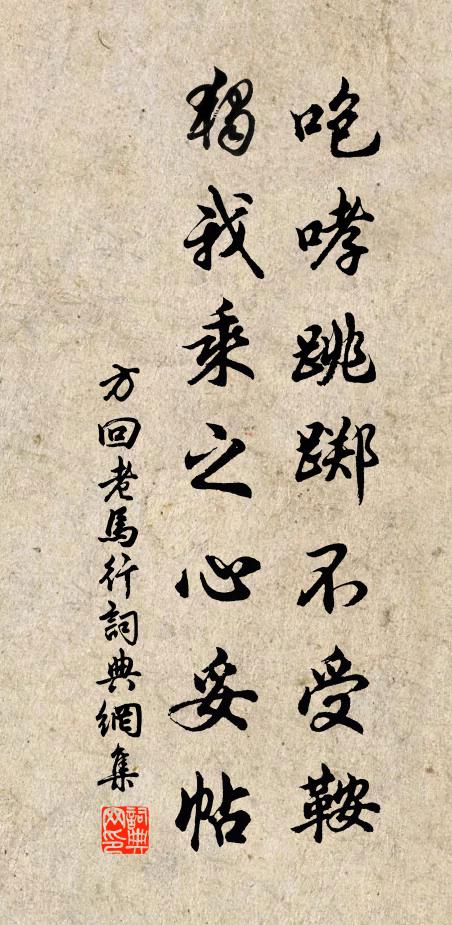 咆哮跳踯不受鞍
獨我乘之心妥帖
方回老馬行詞典網集
詞典网印